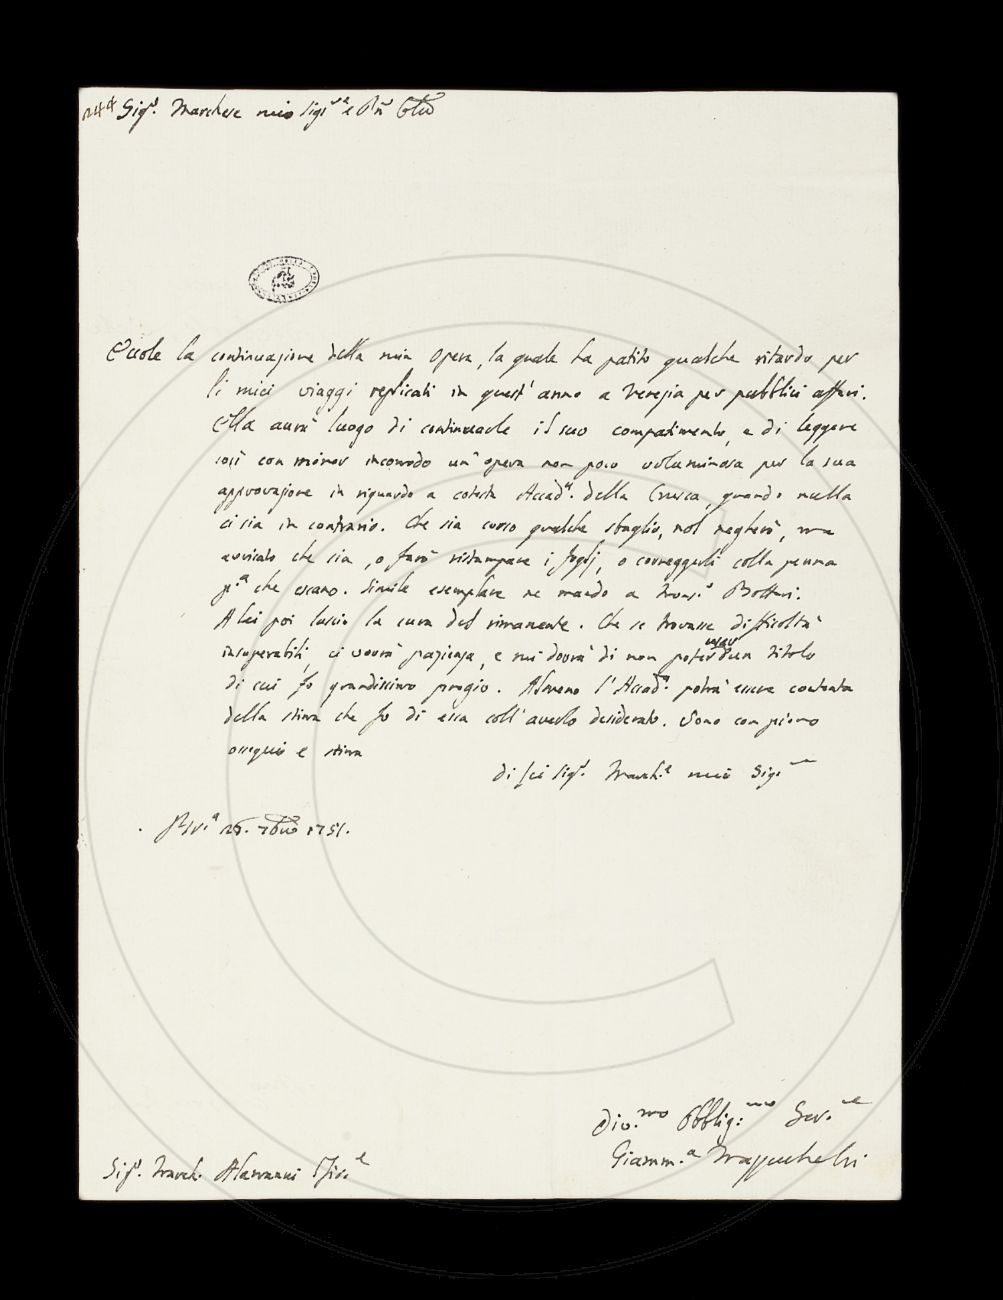 244 Sig.r Marchese mio Sig.r e Pñ Col.mo
Eccole la continuazione della mia Opera, la quale ha patito qualche ritardo per
li miei viaggi replicati in quest' anno a Venezia per pubblici affari.
Ella avrà luogo di continuarle il suo compatimento, e di leggere
così con minor incomodo un' opera non poco voluminosa per la sua
approvazione in riguardo a cotesta Accad.a della Crusca, quando nulla
ci sia in contrario. Che sia corso qualche sbaglio, nol negherò, ma
avvisato che sia, o farò ristampare i foglj, o correggerli colla penna
p.a che escano. Simile esemplare ne mando a Mons.r Bottari.
A lei poi lascio la cura del rimanente. Che se trovasse difficoltà
insuperabili, ci vorrà pazienza, e mi dorrà di non poter usar d'un titolo
di cui fo grandissimo pregio. Almeno l'Accad.a potrà essere contenta
della stima che fo di essa coll' averlo desiderato. Sono con pieno
ossequio e stima
di Lei Sig.r March.e mio Sig.re
Bres.a 26. 7bre 1751.
Div.mo Obblig.mo Ser.re
Giamm.a Mazzuchelli
Sig.r March. Alamanni Fir.e